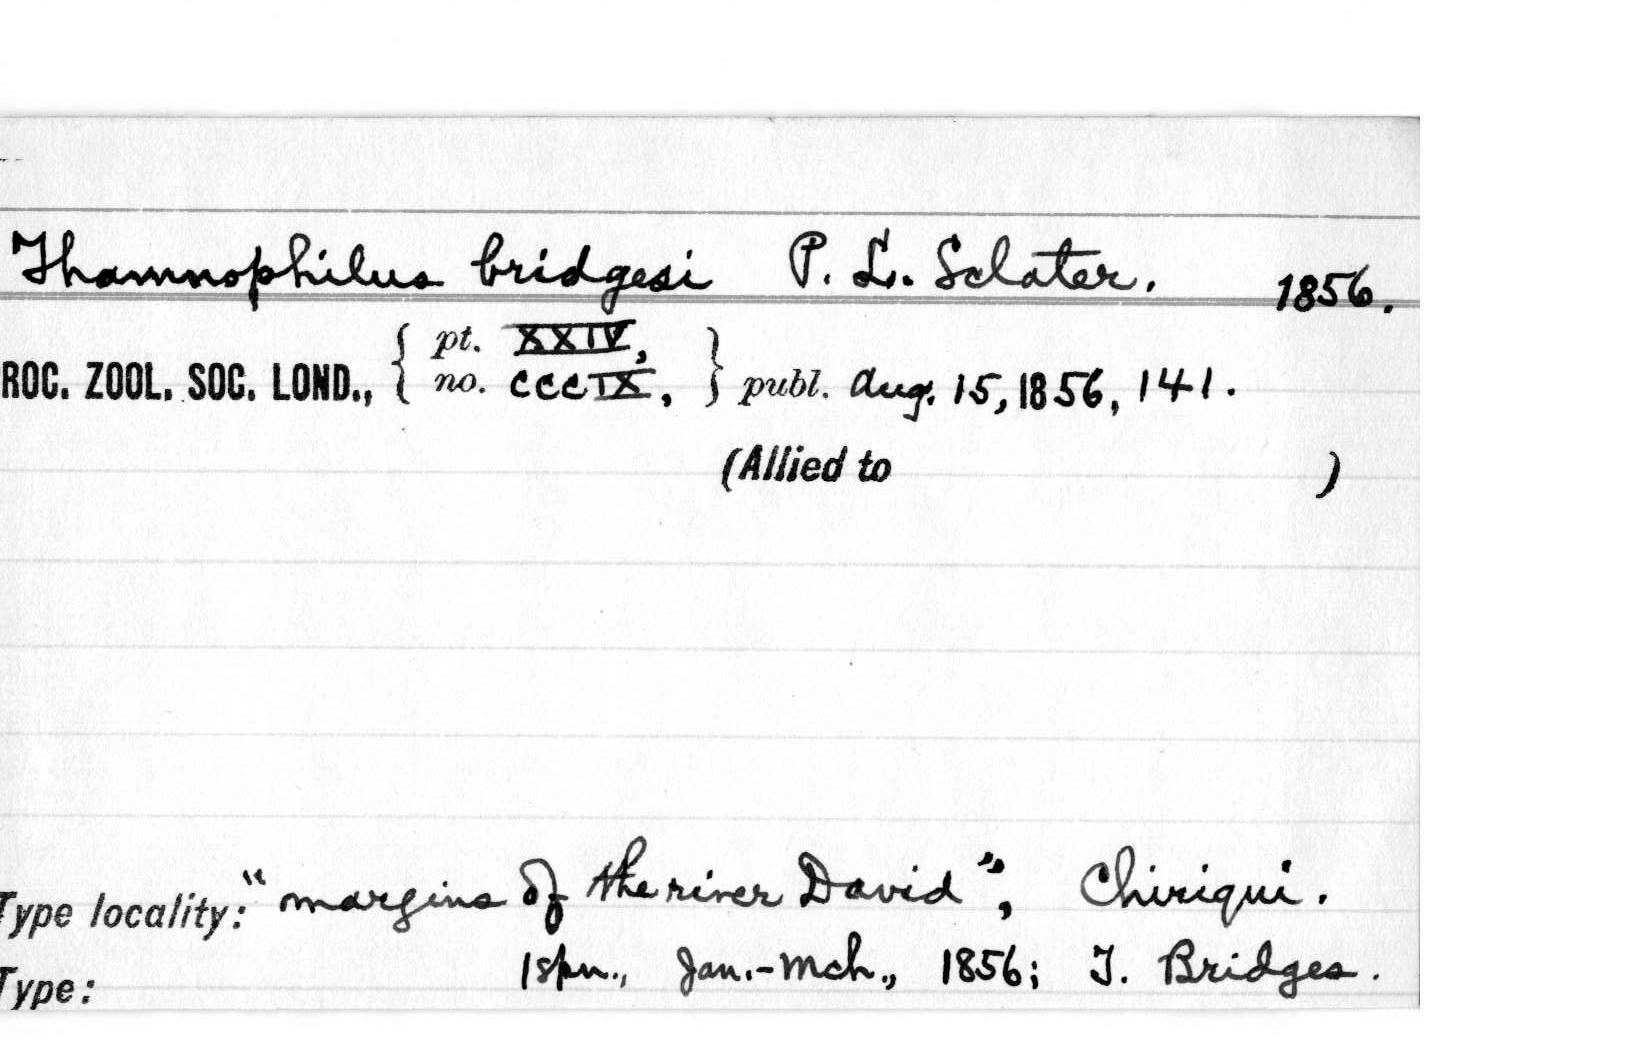 Thamnophilus bridgesi P. L. Sclater. 1856.
ROC. ZOOL. SOC. LOND., { pt. XXIV, no. CCCIX, } publ. Aug. 15, 1856, 141.
(Allied to )
Type locality: "margins of the river David", Chiriqui.
Type: 1 spn., Jan.-Mch., 1856; T. Bridges.